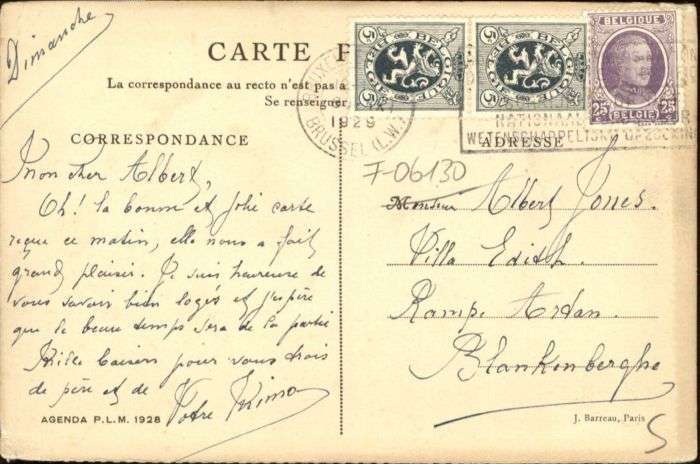 Dimanche
CARTE P
La correspondance au recto n'est pas a
Se renseigner
CORRESPONDANCE
Mon cher Albert,
Oh! la bonne et jolie carte
reçue ce matin, elle nous a fait
grand plaisir. Je suis heureuse de
vous savoir bien logés et j'espère
que le beau temps sera de la partie
Mille baisers pour vous trois
de père et de
Votre
AGENDA P.L.M. 1928
BELGIQUE
BELGIE
5
5
BELGIQUE
BELGIE
5
5
BELGIQUE
BELGIË
25
25
1929
BRUSSEL (L.W.)
NATIONAAL
WETENSCHAPPELIJK OPZOEKING
ADRESSE
7-06130
Monsieur Albert Jones.
Villa Edith.
Rampe Ardan.
Blankenberghe
J. Barreau, Paris